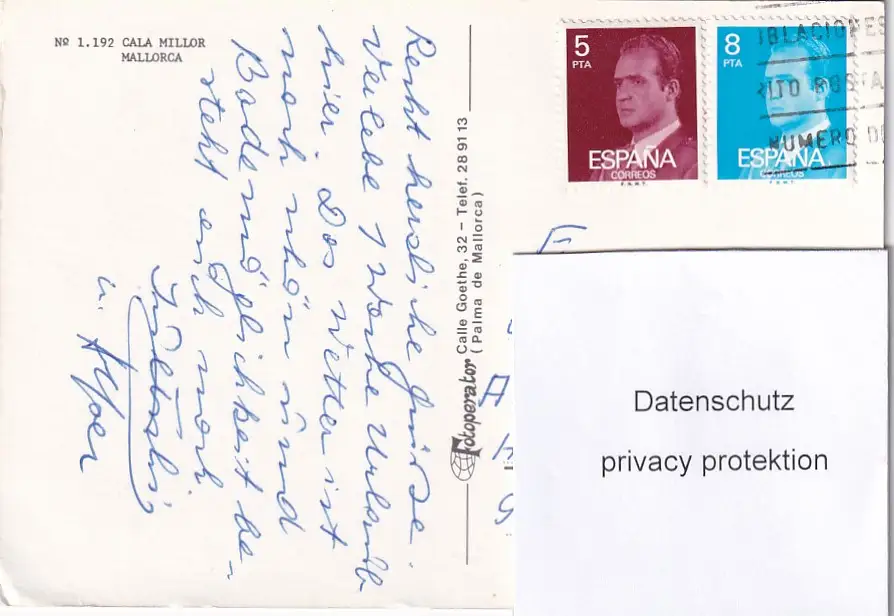 Nº 1.192 CALA MILLOR
MALLORCA
Recht herzliche Grüsse.
Verlebe 1 Woche Urlaub
hier. Das Wetter ist
noch schön und
Bademöglichkeit be-
steht auch noch
u.
Fotoperator Calle Goethe, 32 – Telef. 28 91 13
(Palma de Mallorca)
5
PTA
ESPAÑA
CORREOS
F.N.M.T.
8
PTA
ESPAÑA
CORREOS
F.N.M.T.
BLACIONES
POSTA
NUMERO D
Datenschutz
privacy protektion